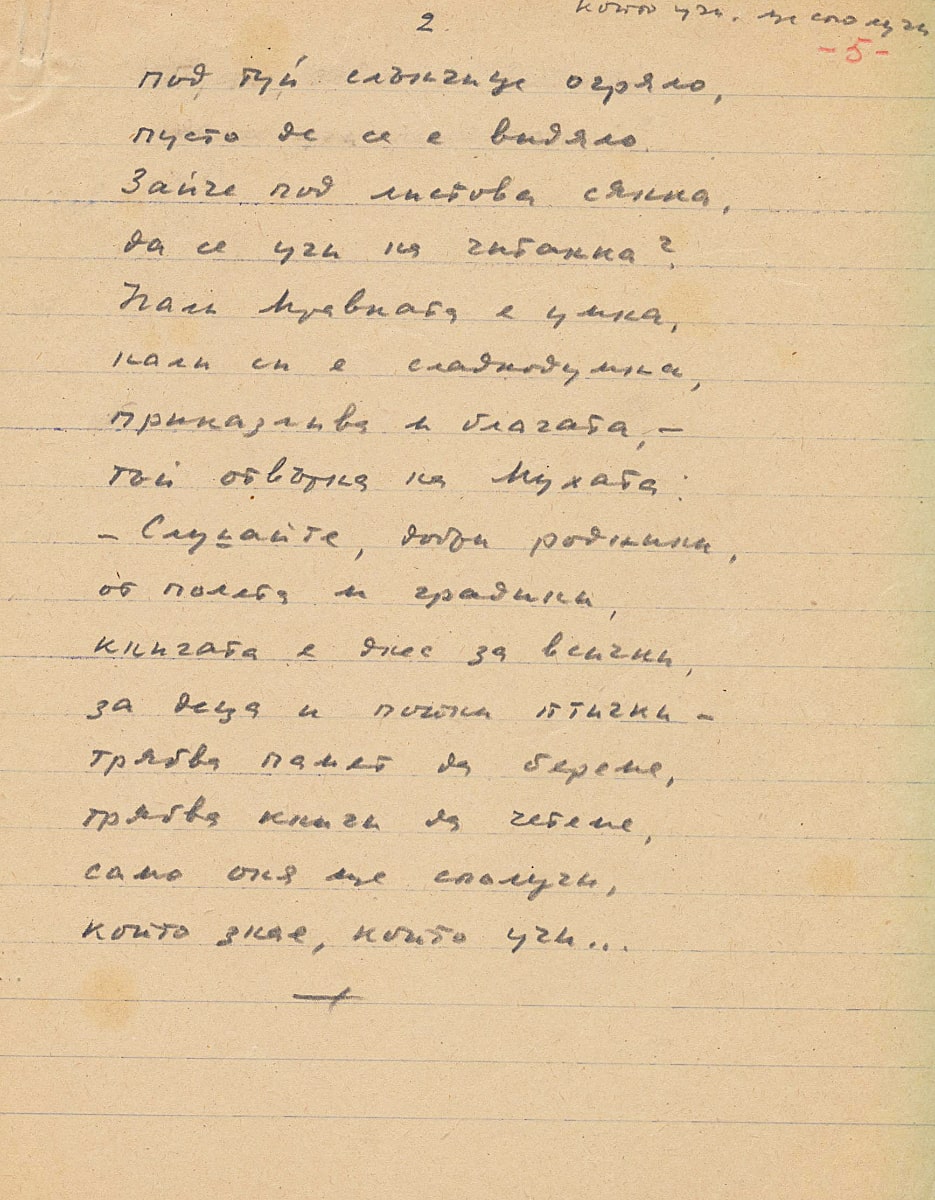 който учи, ще сполучи
2
-5-
под туй слънчице огряло,
пусто де се е видяло
Зайче под листова сянка,
да се учи на читанка?
Нали Мравката е умна,
нали си е сладкодумна,
приказлива и благата, –
тъй отвърна на Мухата:
– Слушайте, добри роднини,
от полета и градини,
книгата е днес за всички,
за деца и полски птички –
трябва памет да берем,
трябва книги да четеме,
само оня ще сполучи,
който знае, който учи...